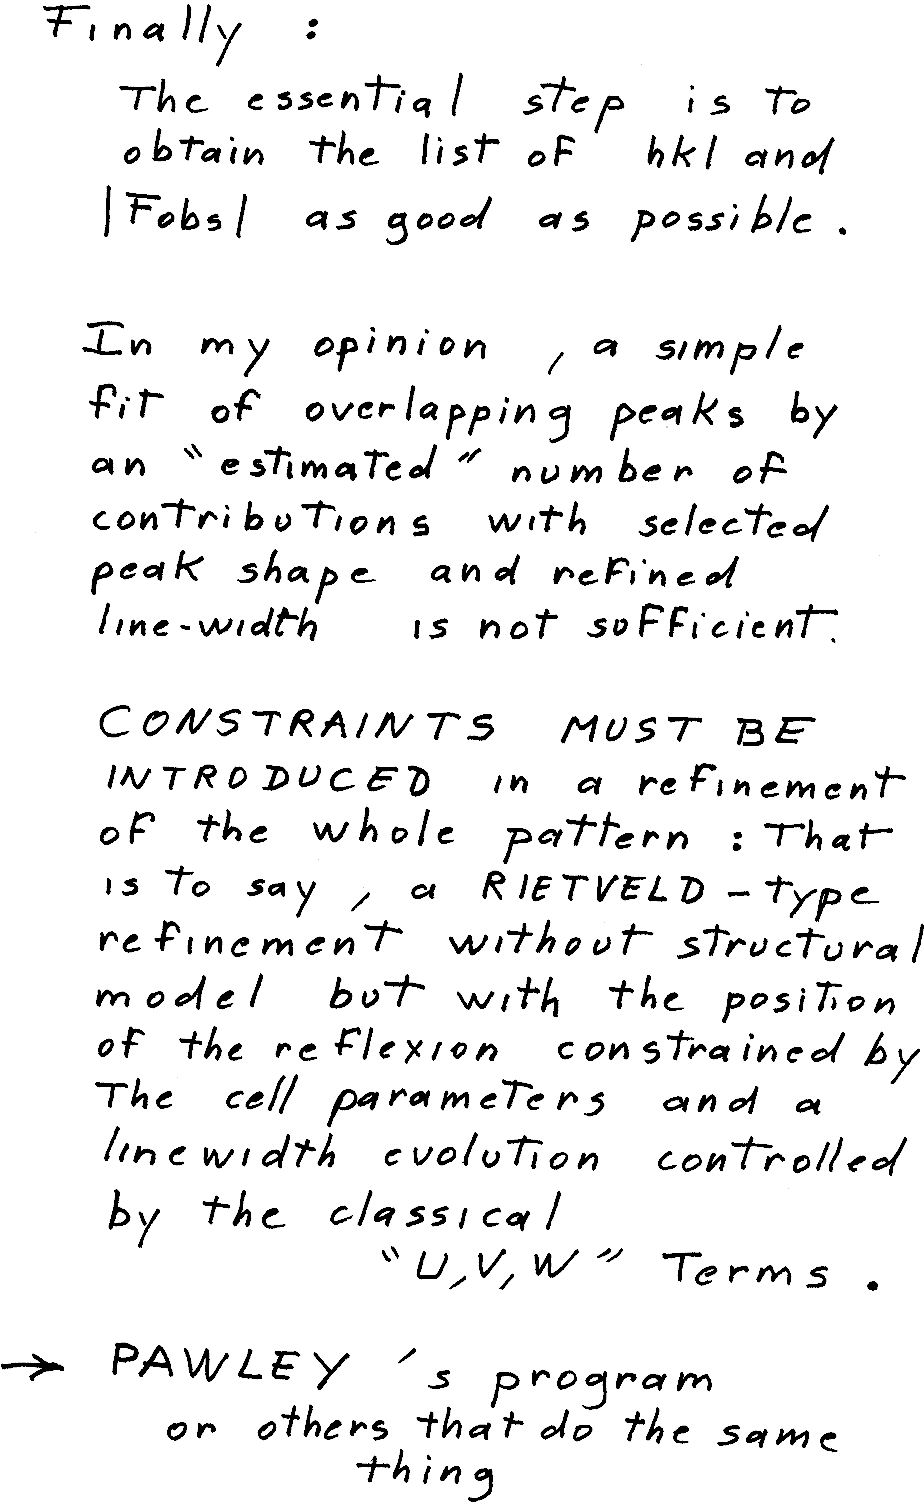 Finally :
The essential step is to
obtain the list of hkl and
|Fobs| as good as possible.
In my opinion, a simple
fit of overlapping peaks by
an "estimated" number of
contributions with selected
peak shape and refined
line-width is not sufficient.
CONSTRAINTS MUST BE
INTRODUCED in a refinement
of the whole pattern : That
is to say, a RIETVELD-type
refinement without structural
model but with the position
of the reflexion constrained by
The cell parameters and a
linewidth evolution controlled
by the classical
"U,V,W" Terms.
→ PAWLEY's program
or others that do the same
thing